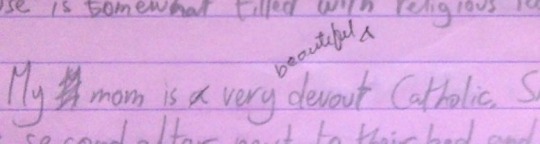 is somewhat filled with religious
beautiful
My mom is a very devout Catholic. S
second altar next to their bed and